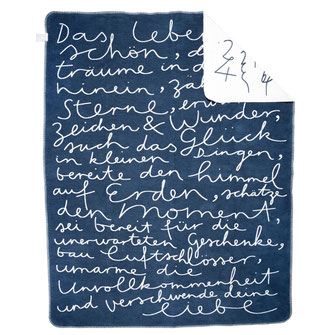 Das Lebe
schön, d
träume in d
hinein, zä
Sterne, er
Zeichen & Wunder,
such das Glück
in kleinen Dingen,
bereite den himmel
auf Erden, schätze
den MomenT,
sei bereit für die
unerwarteten Geschenke,
bau luftschlösser,
umarme die
Unvollkommenheit
und verschwende deine
liebe